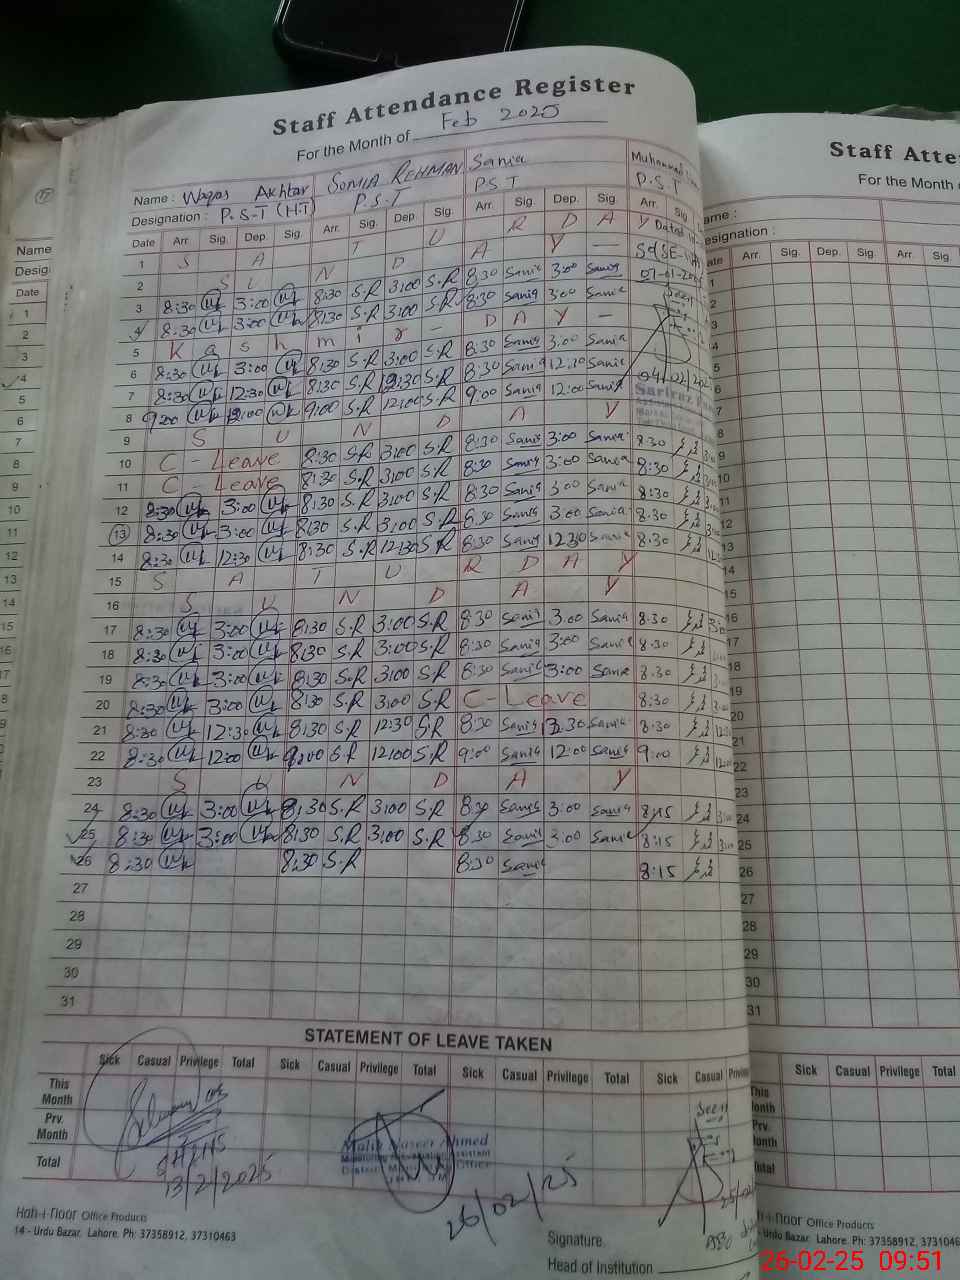 Staff Attendance Register
For the Month of Feb 2025
Name : Waqas Akhtar SONIA REHMAN Sania Muhammad
Designation : P.S-T (H-T) P.S.T PST P.S.T
Date Arr. Sig. Dep. Sig. Arr. Sig. Dep. Sig. Arr. Sig. Dep. Sig. Arr. Sig.
1 S A T U R D A Y
2 S U N D A Y —
3 8:30 3:00 8:30 S.R 3:00 S.R 8:30 Sania 3:00 Sania
4 8:30 3:00 8:30 S.R 3:00 S.R 8:30 Sania 3:00 Sania
5 K a s h m i r - D A Y —
6 8:30 3:00 8:30 S.R 3:00 S.R 8:30 Sania 3:00 Sania
7 8:30 12:30 8:30 S.R 12:30 S.R 8:30 Sania 12:30 Sania
8 9:00 12:00 9:00 S.R 12:00 S.R 9:00 Sania 12:00 Sania
9 S U N D A Y
10 C - Leave 8:30 S.R 3:00 S.R 8:30 Sania 3:00 Sania 8.30
11 C - Leave 8:30 S.R 3:00 S.R 8:30 Sania 3:00 Sania 8:30
12 8:30 3:00 8:30 S.R 3:00 S.R 8:30 Sania 3:00 Sania 8:30
13 8:30 3:00 8:30 S.R 3:00 S.R 8:30 Sania 3:00 Sania 8.30
14 8:30 12:30 8:30 S.R 12:30 S.R 8:30 Sania 12:30 Sania 8.30
15 S A T U R D A Y
16 S U N D A Y
17 8:30 3:00 8:30 S.R 3:00 S.R 8:30 Sania 3:00 Sania 8.30
18 8:30 3:00 8:30 S.R 3:00 S.R 8:30 Sania 3:00 Sania 8.30
19 8:30 3:00 8:30 S.R 3:00 S.R 8:30 Sania 3:00 Sania 8.30
20 8:30 3:00 8:30 S.R 3:00 S.R C-Leave 8:30
21 8:30 12:30 8:30 S.R 12:30 S.R 8:30 Sania 12.30 Sania 8.30
22 8:30 12:00 9:00 S.R 12:00 S.R 9:00 Sania 12:00 Sania 9:00
23 S U N D A Y
24 8:30 3:00 8:30 S.R 3:00 S.R 8:30 Sania 3:00 Sania 8:15
25 8:30 3:00 8:30 S.R 3:00 S.R 8:30 Sania 3:00 Sania 8:15
26 8:30 8:30 S.R 8:30 Sania 8:15
27
28
29
30
31
STATEMENT OF LEAVE TAKEN
Sick Casual Privilege Total Sick Casual Privilege Total Sick Casual Privilege Total Sick Casual
This Month
Prv. Month
Total
13/2/2025
Malik Naseer Ahmed
26/02/25
Seen
Signature.
Head of Institution
Office Products
14 - Urdu Bazar, Lahore. Ph: 37358912, 37310463
For the Month
Arr. Sig. Dep. Sig. Arr. Sig.
Sick Casual Privilege Total
Office Products
Urdu Bazar, Lahore. Ph: 37358912,
26-02-25 09:51